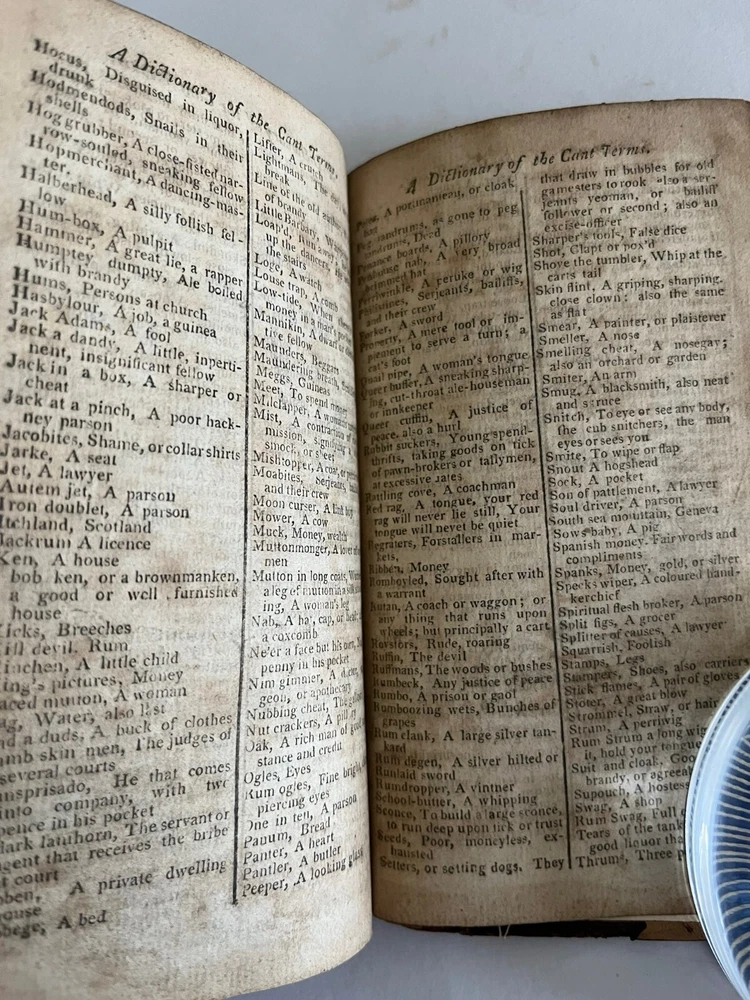 A Dictionary of the Cant Terms.
Hocus, Disguised in liquor,
drunk
Hodmendods, Snails in their
shells
Hog grubber, A close-fisted nar-
row-souled, sneaking fellow
Hopmerchant, A dancing-mas-
ter.
Halberhead, A silly follish fel-
low
Hum-box, A pulpit
Hammer, A great lie, a rapper
Humptey dumpty, Ale boiled
with brandy
Hums, Persons at church
Hasbylour, A job, a guinea
Jack Adams, A fool
Jack a dandy, A little, inperti-
nent, insignificant fellow
Jack in a box, A sharper or
cheat
Jack at a pinch, A poor hack-
ney parson
Jacobites, Shame, or collar shirts
Jarke, A seat
Jet, A lawyer
Autem jet, A parson
Iron doublet, A parson
Itchland, Scotland
Jackrum A licence
Ken, A house
bob ken, or a brownmanken,
a good or well furnished
house
Kicks, Breeches
Kill devil. Rum
Kinchen, A little child
King's pictures, Money
Laced mutton, A woman
Water, also last
a duds, A buck of clothes
skin men, The judges of
several courts
He that comes
into company, with two
pence in his pocket
dark lanthorn, The servant or
agent that receives the bribe
at court
A private dwelling
house
A bed
Lifter, A crutch
Lightmans, The
break
Line of the old author
of brandy
Little Barbary,
Loap'd, Run away
up the dancers,
the stairs
Loge, A watch
Louse trap, A comb
Low-tide, When
money in a man's
Mannikin, A dwarf or
tive fellow
Maunders, Beggars
Maundering breath,
Meggs, Guineas
Meet, To spend money
Milclapper, A woman's
Mist, A contraction of
mission, signifying
smock, or sheet
Mishtopper, A coat, or
Moabites, Serjeants,
and their crew
Moon curser, A link boy
Mower, A cow
Muck, Money, wealth
Muttonmonger, A lover of
men
Mutton in long coats,
a leg of mutton in a silk
ing, A woman's leg
Nab, A hat, cap, or head
a coxcomb
Ne'er a face but his own,
penny in his pocket
Nim gimmer, A
geon, or apothecary
Nubbing cheat, The
Nut crackers, A pillory
Oak, A rich man of good
stance and credit
Ogles, Eyes
Rum ogles, Fine bright,
piercing eyes
One in ten, A parson
Panum, Bread
Panter, A heart
Pantler, A butler
Peeper, A looking glass
A Dictionary of the Cant Terms.
A portmanteau, or cloak
bag
as gone to peg
Dead
Penance boards, A pillory
hat, A very broad
brimmed hat
Perriwinkle, A peruke or wig
Philistines, Serjeants, bailiffs,
and their crew
A sword
Property, A mere tool or im-
plement to serve a turn; a
cat's foot
Quail pipe, A woman's tongue
Queer buffer, A sneaking sharp-
ing, cut-throat ale-houseman
or innkeeper
Queer cuffin, A justice of
peace, also a hurl
Rabbit suckers, Young spend-
thrifts, taking goods on tick
of pawn-brokers or tallymen,
at excessive rates
Rattling cove, A coachman
Red rag, A tongue, your red
rag will never lie still, Your
tongue will never be quiet
Regraters, Forstallers in mar-
kets,
Ribben, Money
Romboyled, Sought after with
a warrant
A coach or waggon; or
any thing that runs upon
wheels; but principally a cart
Roystors, Rude, roaring
Ruffin, The devil
Ruffmans, The woods or bushes
Rumbeck, Any justice of peace
Rumbo, A prison or gaol
Rumboozing wets, Bunches of
grapes
Rum clank, A large silver tan-
kard
Rum degen, A silver hilted or
inlaid sword
Rumdropper, A vintner
School-butter, A whipping
Sconce, To build a large sconce,
to run deep upon tick or trust
Seeds, Poor, moneyless, ex-
hausted
Setters, or setting dogs. They
that draw in bubbles for old
gamesters to rook also a ser-
jeants yeoman, or bailiff
follower or second; also an
excise-officer
Sharper's tools, False dice
Shot, Clapt or pox'd
Shove the tumbler, Whip at the
carts tail
Skin flint, A griping, sharping,
close clown; also the same
as flat
Smear, A painter, or plaisterer
Smeller, A nose
Smelling cheat, A nosegay;
also an orchard or garden
Smiter, An arm
Smug, A blacksmith, also neat
and spruce
Snitch, To eye or see any body,
the cub snitchers, the man
eyes or sees you
Smite, To wipe or flap
Snout A hogshead
Sock, A pocket
Son of pattlement, A lawyer
Soul driver, A parson
South sea mountain, Geneva
Sows baby, A pig
Spanish money. Fair words and
compliments
Spanks, Money, gold, or silver
Specks wiper, A coloured hand-
kerchief
Spiritual flesh broker, A parson
Split figs, A grocer
Splitter of causes, A lawyer
Squarrish, Foolish
Stamps, Legs
Stampers, Shoes, also carriers
Stick flames, A pair of gloves
Stoter, A great blow
Strommel, Straw, or hair
Strum, A perriwig
Rum Strum a long wig
it, hold your tongue
Suit and cloak, Good
brandy, or agreeable
Supouch, A hostess
Swag, A shop
Rum Swag, Full of
Tears of the tankard
good liquor that
Thrums, Three